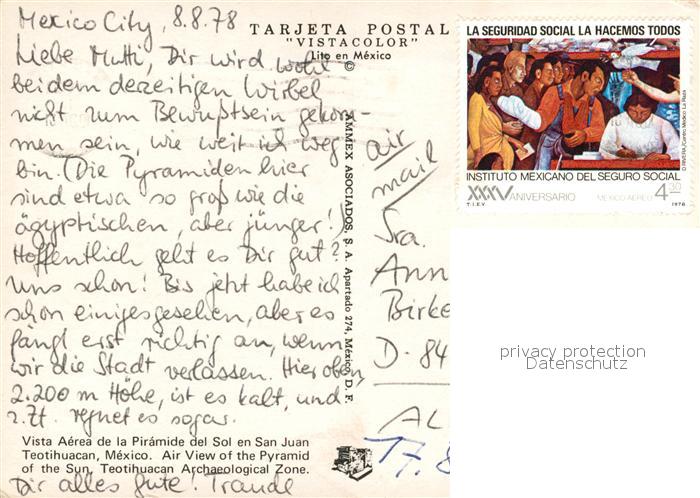 Mexico City, 8.8.78
Liebe Mutti, Dir wird wohl
bei dem derzeitigen Wirbel
nicht zum Bewußtsein gekom-
men sein, wie weit ich weg
bin. (Die Pyramiden hier
sind etwa so groß wie die
ägyptischen, aber jünger!)
Hoffentlich geht es Dir gut?
Uns schon! Bis jetzt habe ich
schon einiges gesehen, aber es
fängt erst richtig an, wenn
wir die Stadt verlassen. Hier oben,
2.200 m Höhe, ist es kalt, und
z.Zt. regnet es sogar.
Dir alles Gute! Traude
TARJETA POSTAL
"VISTACOLOR"
Lito en México
©
AMMEX ASOCIADOS, S. A. Apartado 274, México, D. F.
Vista Aérea de la Pirámide del Sol en San Juan
Teotihuacan, México. Air View of the Pyramid
of the Sun, Teotihuacan Archaeological Zone.
air
mail
Sra.
Ann
Birke
D-84
AL
LA SEGURIDAD SOCIAL LA HACEMOS TODOS
INSTITUTO MEXICANO DEL SEGURO SOCIAL
XXXV ANIVERSARIO MEXICO AEREO 4.30
T.I.E.V. 1978
privacy protection
Datenschutz